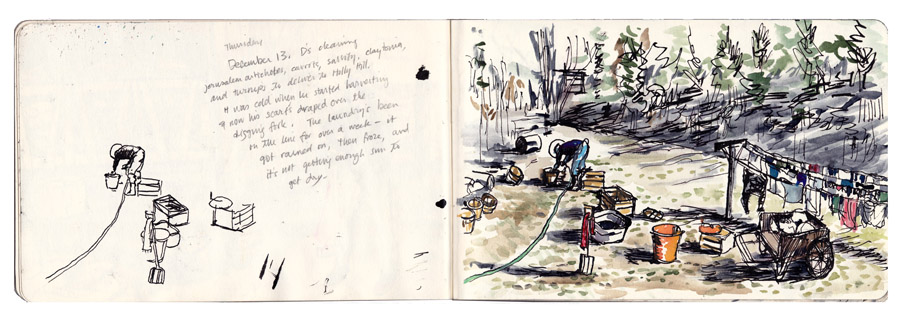 Thursday
December 13. D's cleaning
jerusalem artichokes, carrots, salsify, claytonia,
and turnips to deliver to Holly Hill.
It was cold when he started harvesting
& now his scarf's draped over the
digging fork. The laundry's been
on the line for over a week – it
got rained on, then froze, and
it's not getting enough sun to
get dry.